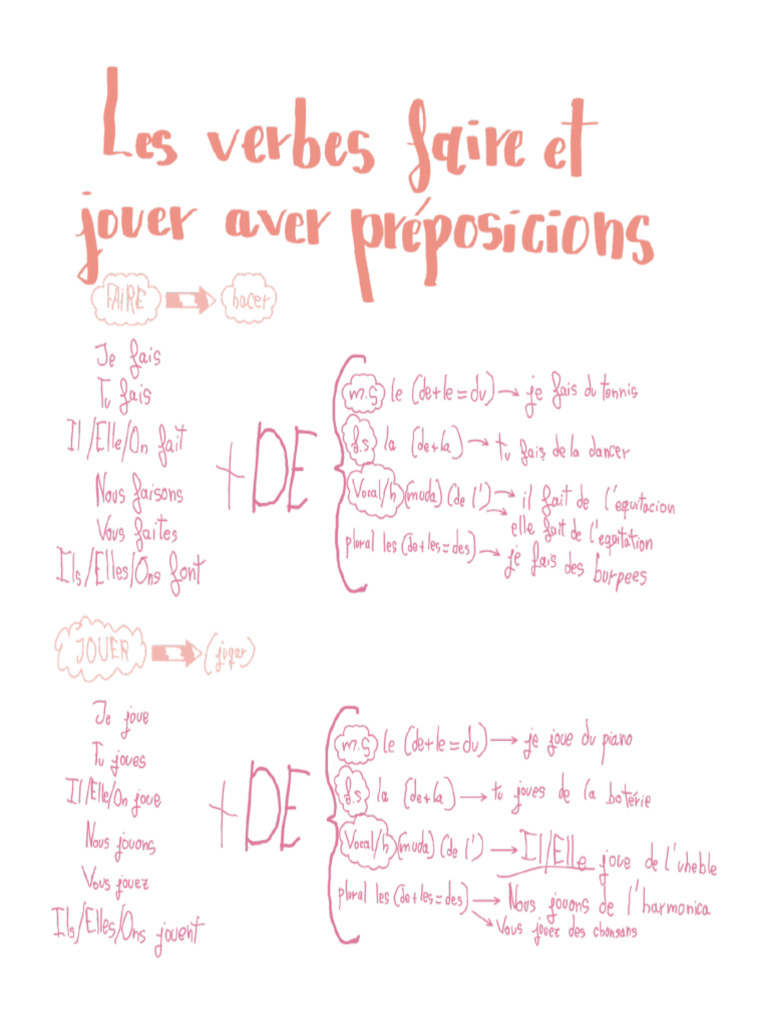 Les verbes faire et
jouer aver préposicions
FAIRE hacer
Je fais
Tu fais
Il/Elle/On fait
Nous faisons
Vous faites
Ils/Elles/Ons font
+DE
m.s le (de+le=du) → je fais du tennis
f.s la (de+la) → tu fais de la dancer
Vocal/h (muda) (de l') → il fait de l'equitacion
elle fait de l'equitation
plural les (de+les=des) → je fais des burpees
JOUER (jugar)
Je joue
Tu joues
Il/Elle/On joue
Nous jouons
Vous jouez
Ils/Elles/Ons jouent
+DE
m.s le (de+le=du) → je joue du piano
f.s la (de+la) → tu joues de la batérie
Vocal/h (muda) (de l') → Il/Elle joue de l'uheble
plural les (de+les=des) → Nous jouons de l'harmonica
Vous jouez des chansans